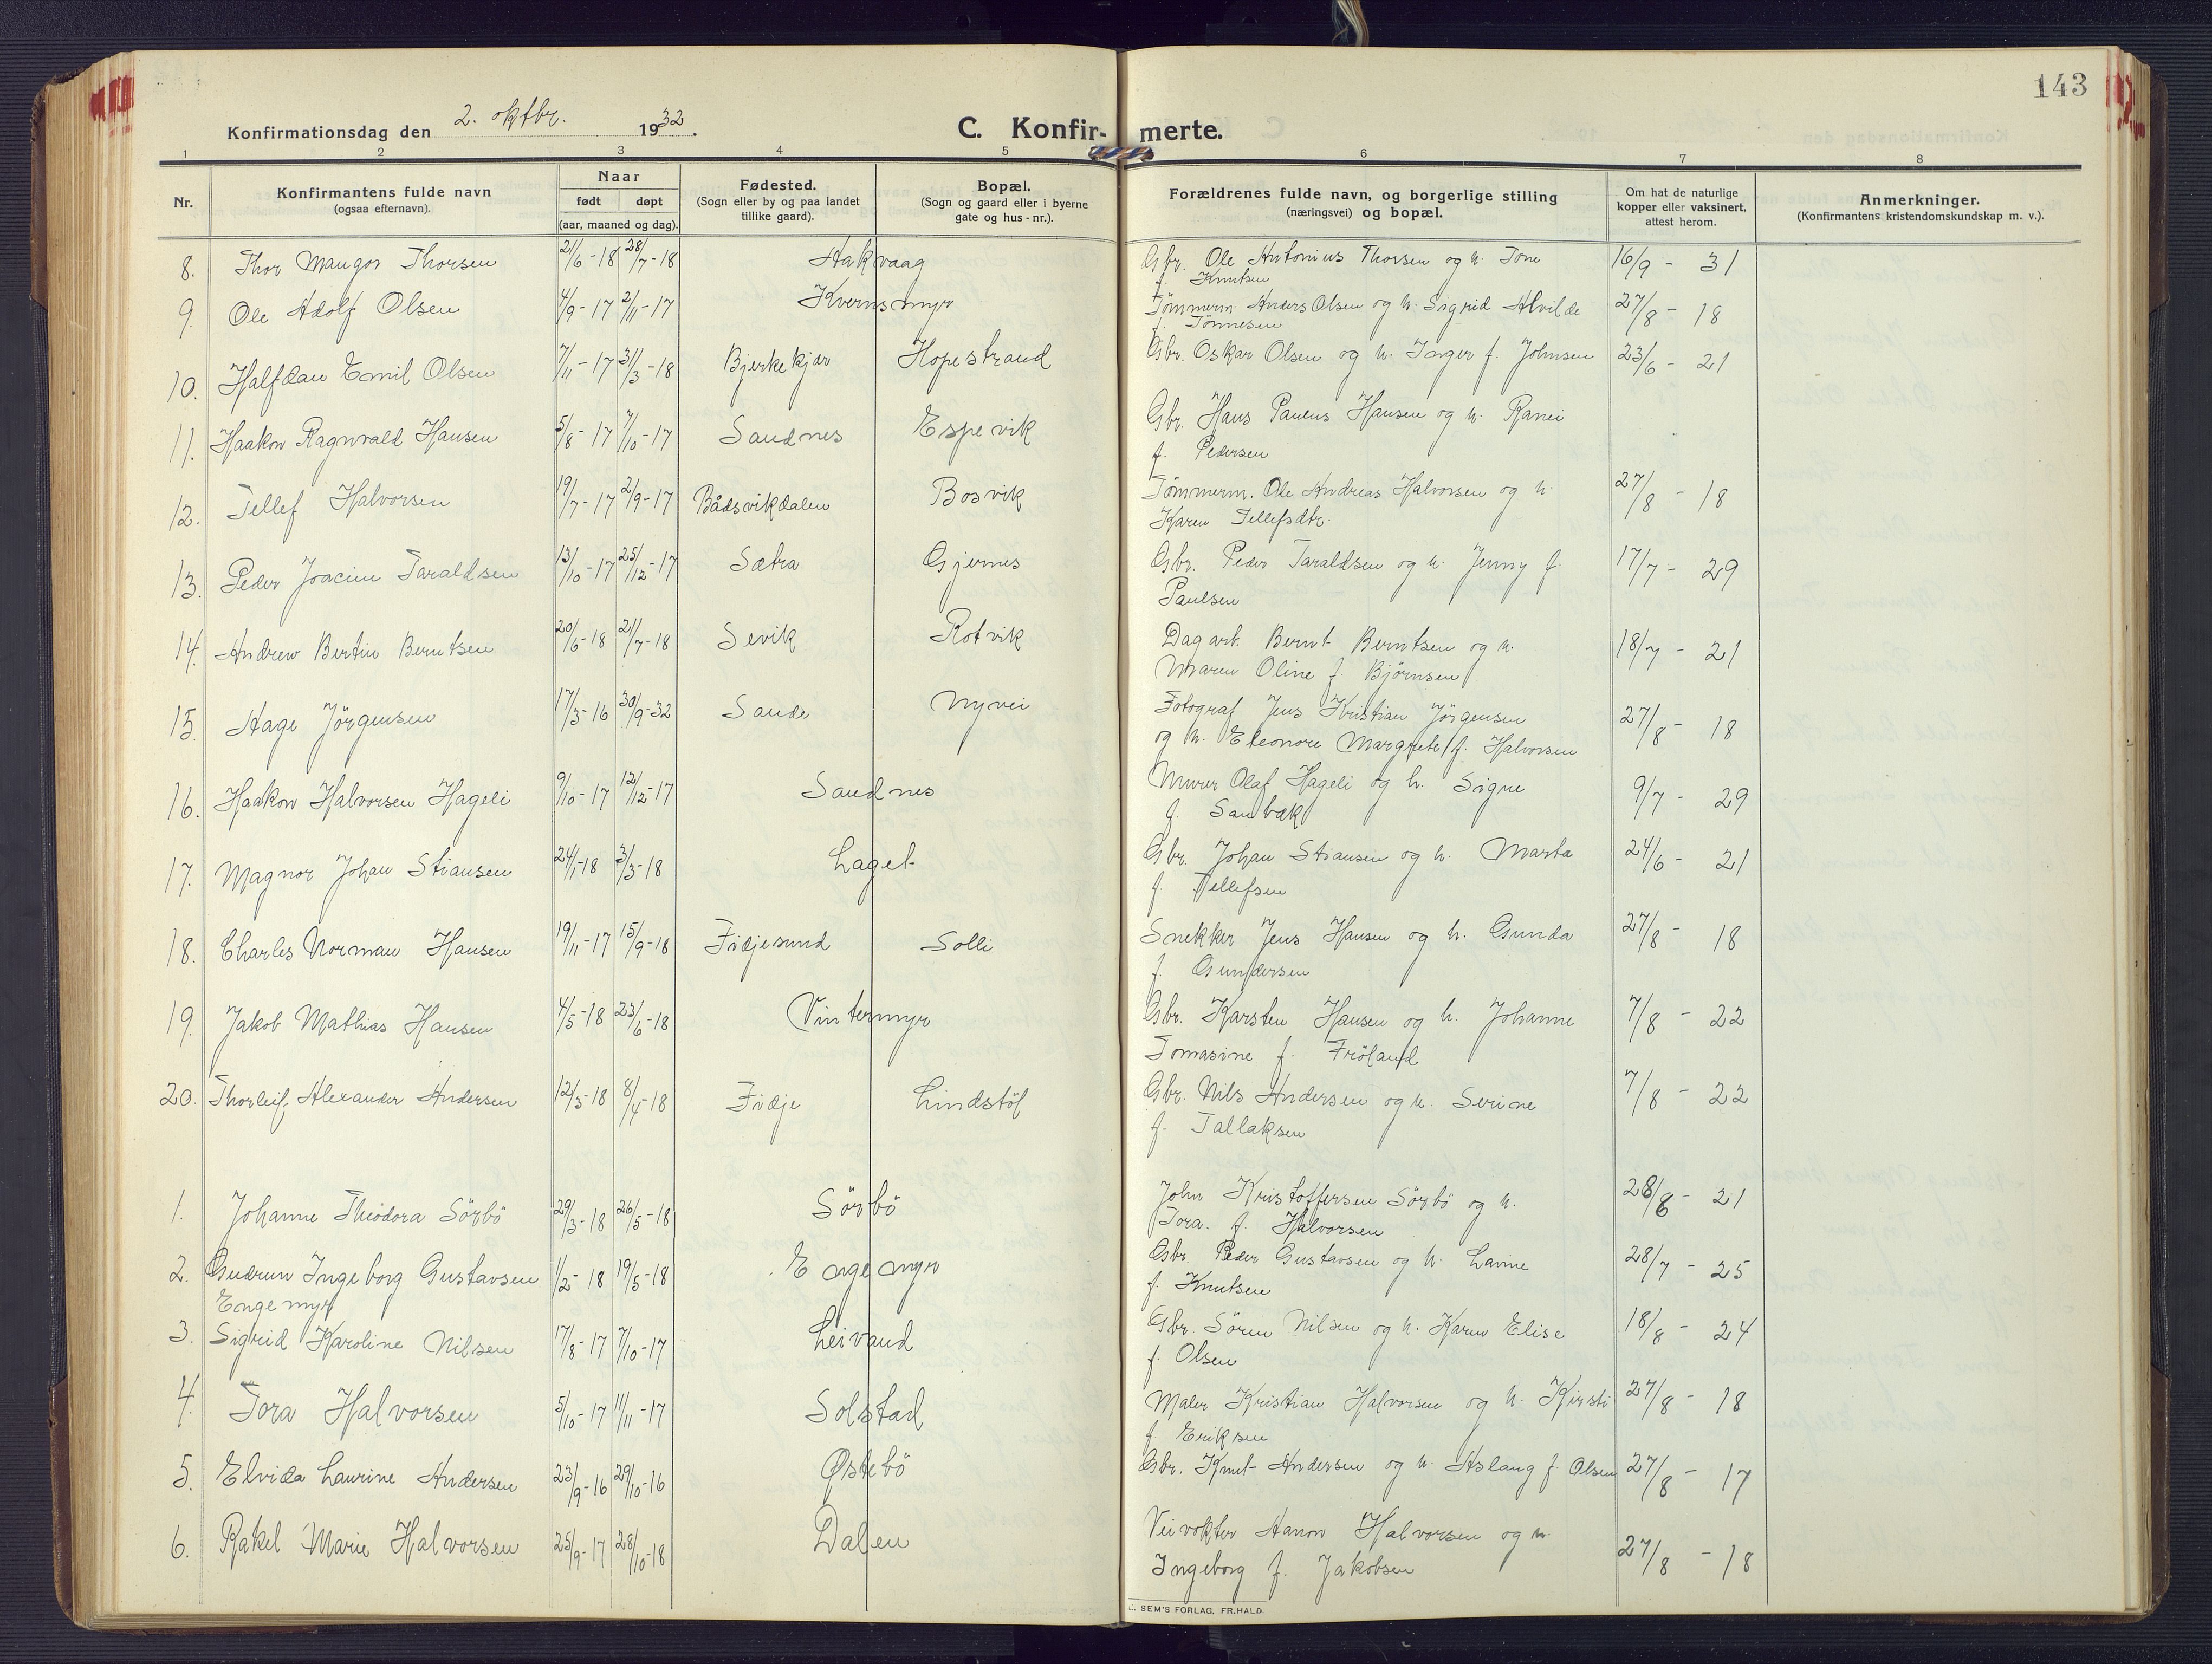 143
Konfirmationsdag den 2. oktbr. 1932.
C. Konfirmerte.
1 2 3 4 5 6 7 8
Nr.
Konfirmantens fulde navn
(ogsaa efternavn).
Naar
født døpt
(aar, maaned og dag).
Fødested.
(Sogn eller by og paa landet
tillike gaard).
Bopæl.
(Sogn og gaard eller i byerne
gate og hus - nr.).
Forældrenes fulde navn, og borgerlige stilling
(næringsvei) og bopæl.
Om hat de naturlige
kopper eller vaksinert,
attest herom.
Anmerkninger.
(Konfirmantens kristendomskundskap m. v.).
8. Thor Mangor Thorsen 21/6-18 28/7-18 Hakvaag Gbr. Ole Antonius Thorsen og h. Tone 16/9 - 31
f. Knutsen
9. Ole Adolf Olsen 4/9-17 2/11-17 Kvernsmyr Tömmerm. Anders Olsen og h. Sigrid Alvilde 27/8 - 18
f. Tönnesen
10. Halfdan Emil Olsen 7/11-17 31/3-18 Bjerkekjær Hopestrand Gbr. Oskar Olsen og h. Inger f. Johnsen 23/6 - 21
11. Haakon Ragnvald Hansen 5/8-17 7/10-17 Sandnes Espevik Gbr. Hans Paulus Hansen og h. Ranei
f. Pedersen
12. Tellef Halvorsen 19/7-17 2/9-17 Bådsvikdalen Bosvik Tömmerm. Ole Andreas Halvorsen og h. 27/8 - 18
Karen Tellefsdtr.
13. Peder Joacim Taraldsen 13/10-17 25/12-17 Sætra Gjernes Gbr. Peder Taraldsen og h. Jenny f. 17/7 - 29
Paulsen
14. Andrew Bertin Berntsen 20/6-18 21/7-18 Sevik Rotvik Dagarb. Bernt Berntsen og h. 18/7 - 21
Maren Oline f. Bjørnsen
15. Hage Jörgensen 17/3-16 30/9-32 Sande Nyvei Fotograf Jens Kristian Jörgensen 27/8 - 18
og h. Eleonore Margrete f. Halvorsen
16. Haakon Halvorsen Hageli 9/10-17 12/12-17 Sandnes Murer Olaf Hageli og h. Signe 9/7 - 29
f. Sanbæk
17. Magnor Johan Stiansen 24/1-18 3/3-18 Laget Gbr. Johan Stiansen og h. Marta 24/6 - 21
f. Tellefsen
18. Charles Norman Hansen 19/11-17 15/9-18 Fidjesund Solli Snekker Jens Hansen og h. Gunda 27/8 - 18
f. Gundersen
19. Jakob Mathias Hansen 4/5-18 23/6-18 Vintermyr Gbr. Karsten Hansen og h. Johanne 7/8 - 22
Tomasine f. Fröland
20. Thorleif Alexander Andersen 12/3-18 8/4-18 Fidje Lindstöl Gbr. Nils Andersen og h. Serine 7/8 - 22
f. Tallaksen
1. Johanne Theodora Sörbö 29/3-18 26/5-18 Sörbö John Kristoffersen Sörbö og h. 28/6 - 21
Tora. f. Halvorsen
2. Gudrun Ingeborg Gustavsen 1/2-18 19/5-18 Engemyr Gbr. Peder Gustavsen og h. Lavine 28/7 - 25
Engemyr f. Knutsen
3. Sigrid Karoline Nilsen 17/8-17 7/10-17 Leivand Gbr. Sören Nilsen og h. Karen Elise 18/8 - 24
f. Olsen
4. Tora Halvorsen 5/10-17 11/11-17 Solstad Maler Kristian Halvorsen og h. Kirsti 27/8 - 18
f. Eriksen
5. Elvida Laurine Andersen 23/9-16 29/10-16 Østebö Gbr. Knut Andersen og h. Aslaug f. Olsen 27/8 - 17
6. Rakel Marie Halvorsen 25/9-17 28/10-18 Dalen Veivokter Hanon Halvorsen og h. 27/8 - 18
Ingeborg f. Jakobsen
SEM'S FORLAG, FR.HALD.